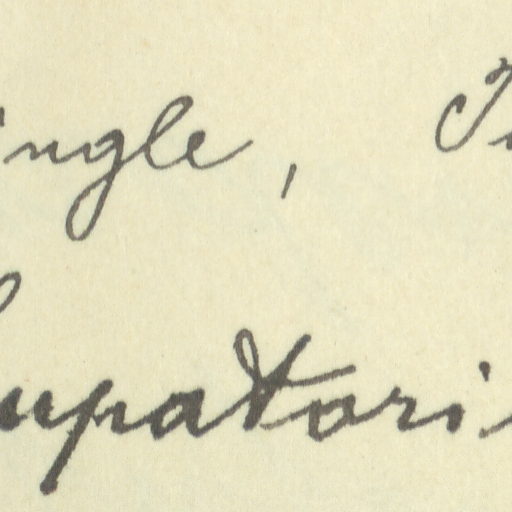 ingle, T
upatori